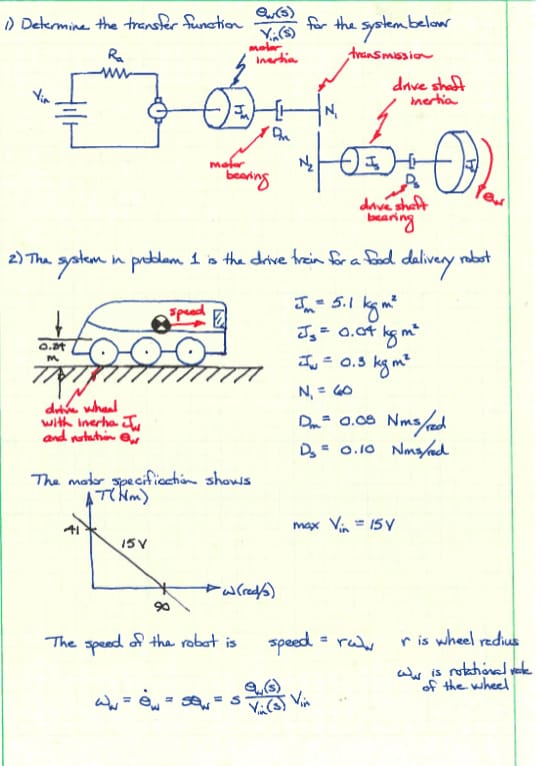 1) Determine the transfer function Θw(s)/Vin(s) for the system below
Ra
motor
inertia
transmission
Vin
Jm
N1
drive shaft
inertia
Dm
motor
bearing
N2
Js
Ds
Jw
θw
drive shaft
bearing
2) The system in problem 1 is the drive train for a food delivery robot
speed
m
drive wheel
with inertia Jw
and rotation θw
Jm = 5.1 kg m²
Js = 0.07 kg m²
Jw = 0.3 kg m²
N1 = 60
Dm = 0.08 Nms/rad
Ds = 0.10 Nms/rad
The motor specification shows
T(Nm)
41
15 V
max Vin = 15 V
ω(rad/s)
90
The speed of the robot is speed = rωw r is wheel radius
ωw is rotational rate
of the wheel
ωw = θ̇w = sθw = s Θw(s)/Vin(s) Vin